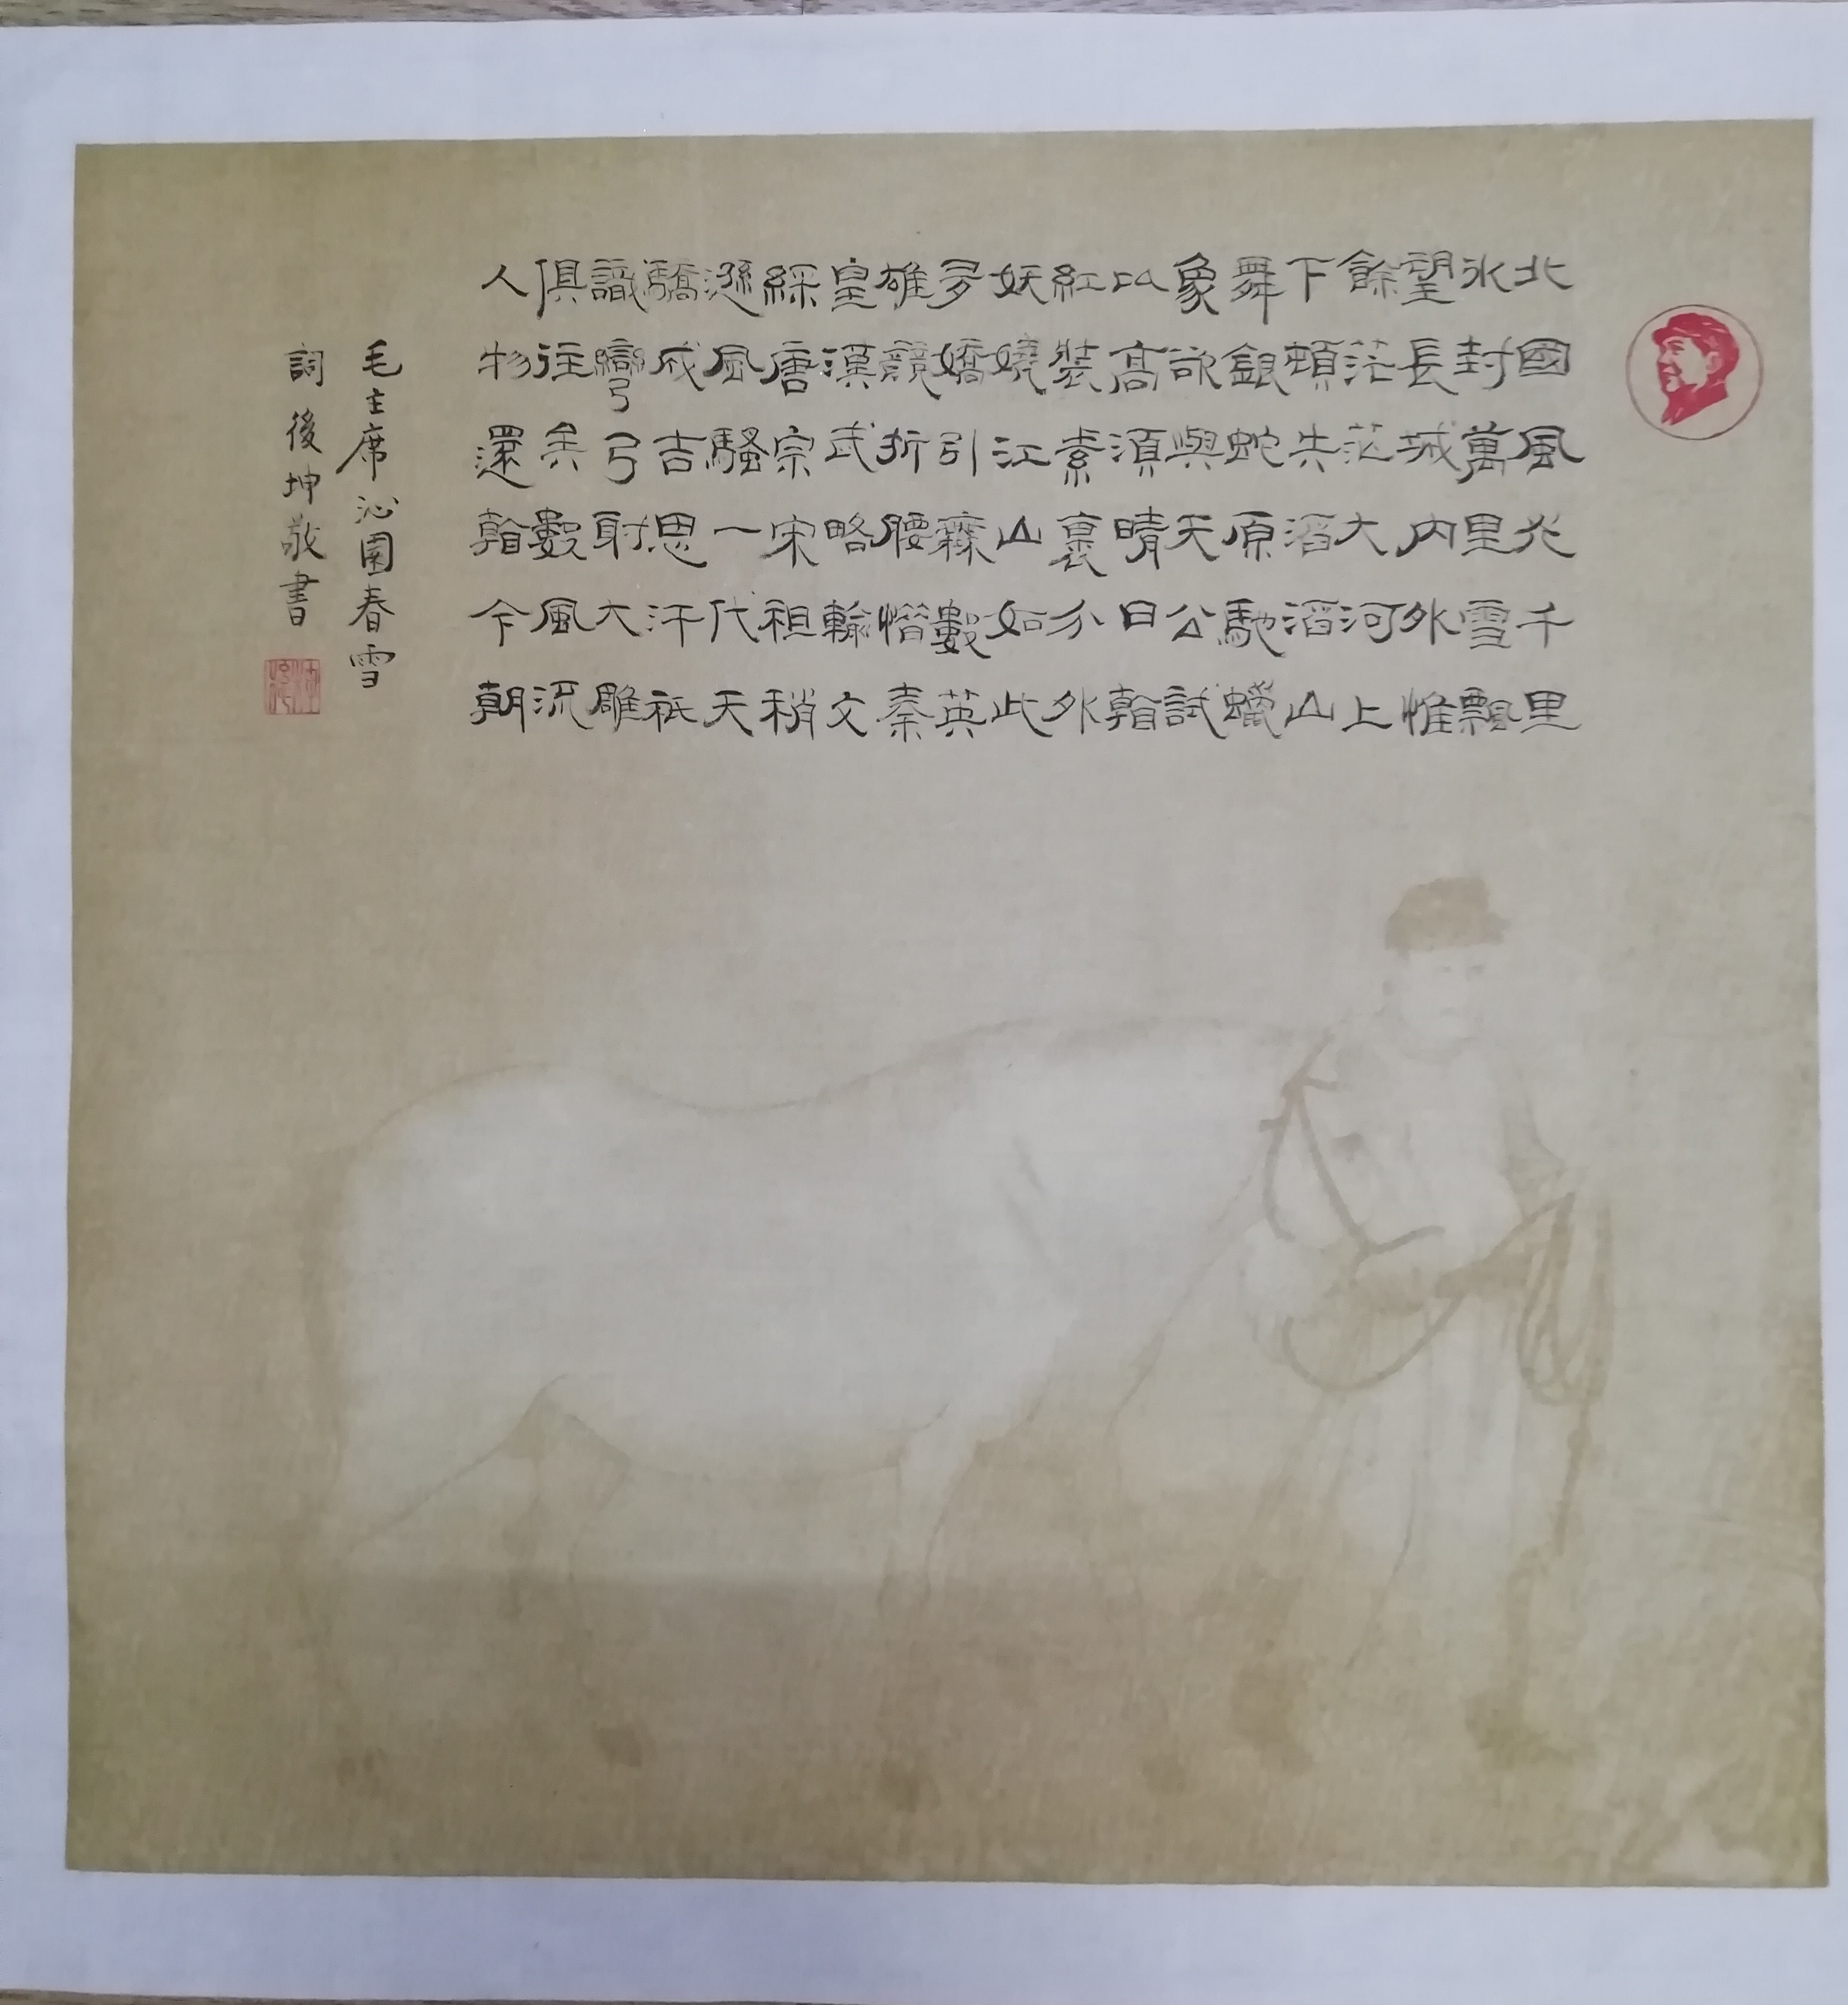 北國風光千里
冰封萬里雪飄
望長城內外惟
餘茫茫大河上
下頓失滔滔山
舞銀蛇原馳蠟
象欲與天公試
比高須晴日看
紅裝素裹分外
妖嬈江山如此
多嬌引無數英
雄競折腰惜秦
皇漢武略輸文
綵唐宗宋祖稍
遜風騷一代天
驕成吉思汗祇
識彎弓射大雕
俱往矣數風流
人物還看今朝
毛主席沁園春雪
詞後坤敬書